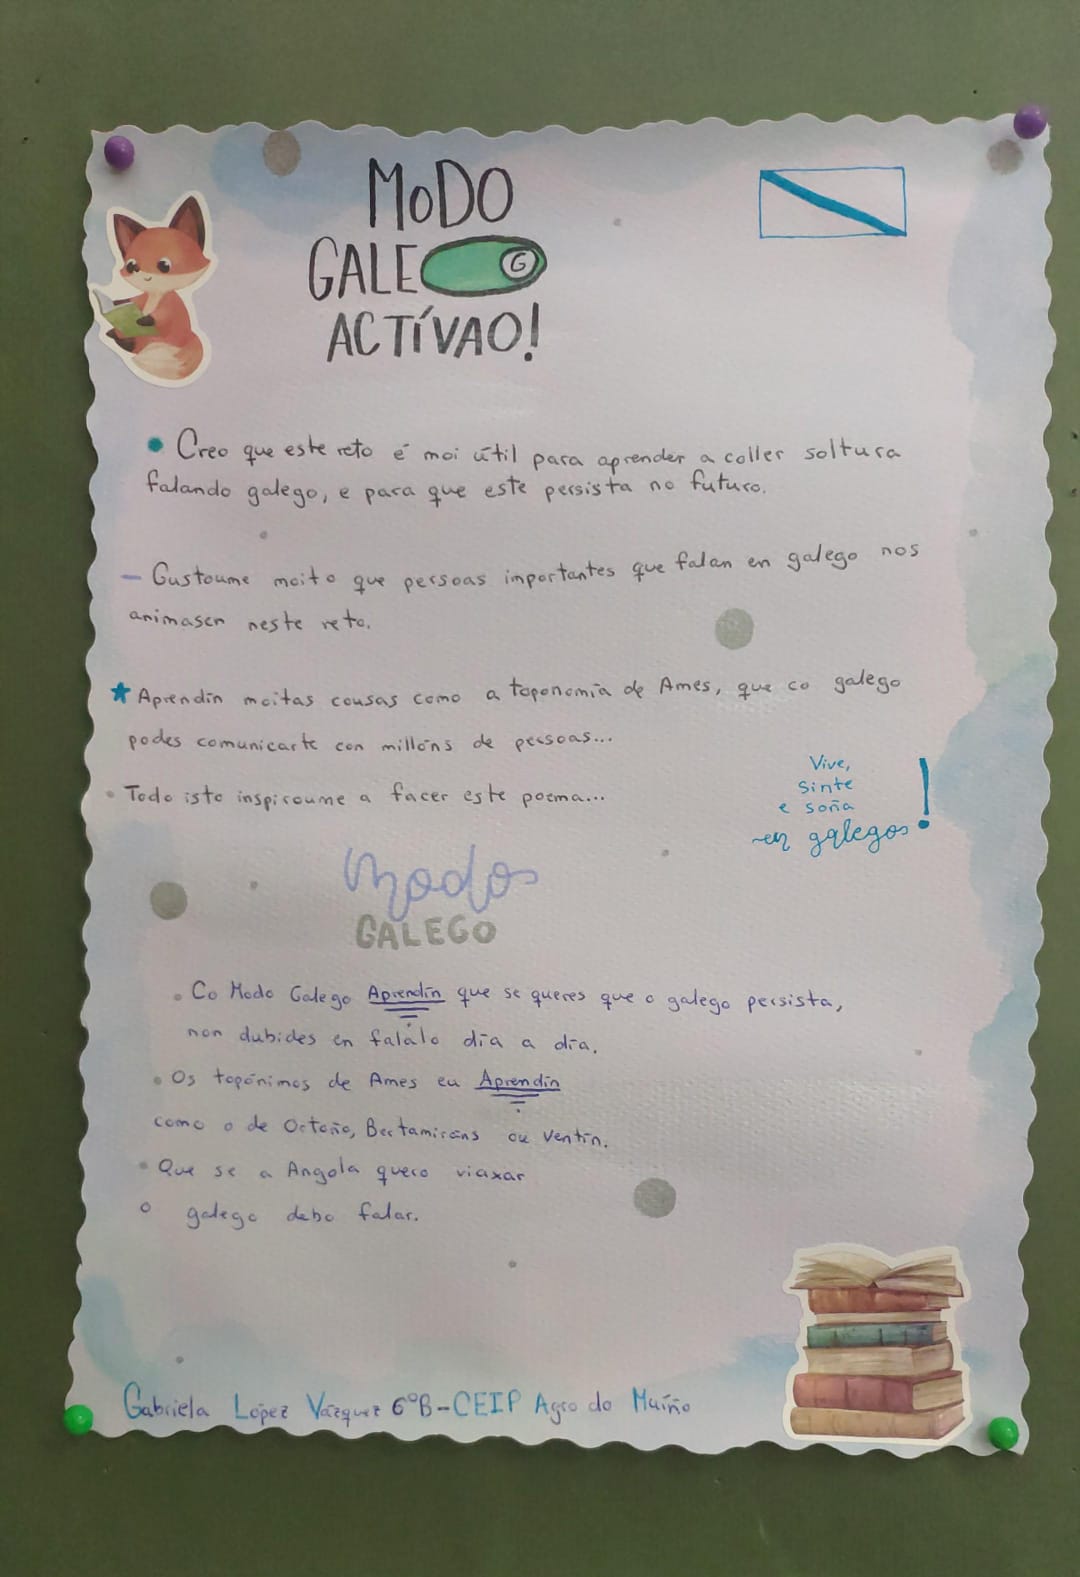 MoDO
GALEGO
ACTÍVAO!
Creo que este reto é moi útil para aprender a coller soltura
falando galego, e para que este persista no futuro.
- Gustoume moito que persoas importantes que falan en galego nos
animasen neste reto.
Aprendín moitas cousas como a toponomía de Ames, que co galego
podes comunicarte con millóns de persoas...
Todo isto inspiroume a facer este poema...
Vive,
sinte
e soña
en galego!
Modo
GALEGO
Co Modo Galego Aprendín que se queres que o galego persista,
non dubides en falalo día a día.
Os topónimos de Ames eu Aprendín
como o de Ortoño, Bertamiráns ou Ventín.
Que se a Angola quero viaxar
o galego debo falar.
Gabriela López Vázquez 6ºB-CEIP Agro do Muíño